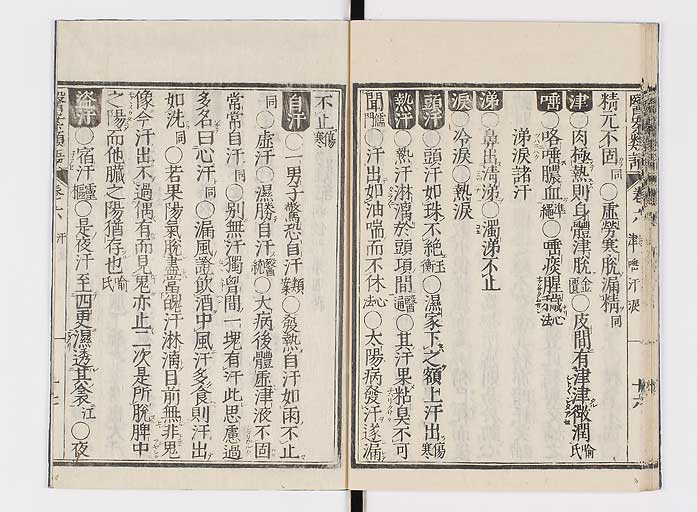 精元不固同○虛勞寒脫漏精同
津○肉極熱則身體津脫金○皮間有津津微潤喻氏
唾○咯唾膿血準繩○唾痰腥臭心法
涕淚諸汗
涕○鼻出清涕○濁涕不止
淚○冷淚○熱淚
頭汗○頭汗如珠不絕王衡○濕家下之額上汗出傷寒
熱汗○熱汗淋漓於頭項間醫通○其汗果粘臭不可
聞儒門○汗出如油喘而不休心法○太陽病發汗遂漏
不止傷寒
自汗○一男子驚恐自汗類案○發熱自汗如雨不止
同○虛汗○濕勝自汗醫統○大病後體虛津液不固
常常自汗同○別無汗獨胷間一塊有汗此思慮過
多名曰心汗同○漏風證飲酒中風汗多食則汗出
如洗同○若果陽氣脫盡當魄汗淋漓目前無非鬼
像今汗出不過偶有而見鬼亦止二次是所脫脾中
之陽而他臟之陽猶存也喻氏
盜汗○宿汗靈樞○是夜汗至四更濕透其衾江○夜
醫案類語 卷六 津唾汗淚 十六
卷六 汗 十七